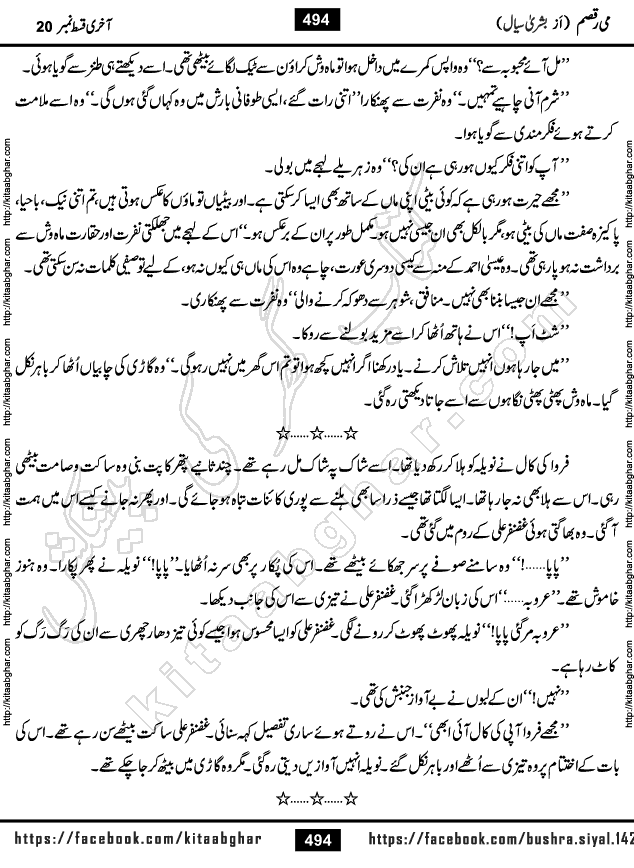 می رقصم (از بشریٰ سیال) 494 آخری قسط نمبر 20
’’مل آئے محبوبہ سے؟‘‘ وہ واپس کمرے میں داخل ہوا تو ماہ وش کراؤن سے ٹیک لگائے بیٹھی تھی۔ اسے دیکھتے ہی طنز سے گویا ہوئی۔
’’شرم آنی چاہیے تمہیں۔‘‘ وہ نفرت سے پھنکارا ’’اتنی رات گئے، ایسی طوفانی بارش میں وہ کہاں گئی ہوں گی۔‘‘ وہ اسے ملامت
کرتے ہوئے فکر مندی سے گویا ہوا۔
’’آپ کو اتنی فکر کیوں ہو رہی ہے ان کی؟‘‘ وہ زہریلے لہجے میں بولی۔
’’مجھے حیرت ہو رہی ہے کہ کوئی بیٹی اپنی ماں کے ساتھ بھی ایسا کر سکتی ہے۔ اور بیٹیاں تو ماؤں کا عکس ہوتی ہیں، تم اتنی نیک، باحیا،
پاکیزہ صفت ماں کی بیٹی ہو، مگر بالکل بھی ان جیسی نہیں ہو۔ مکمل طور پر ان کے برعکس ہو۔‘‘ اس کے لہجے میں جھلکتی نفرت اور حقارت ماہ وش سے
برداشت نہ ہو پا رہی تھی۔ وہ عیسیٰ احمد کے منہ سے کیسی دوسری عورت، چاہے وہ اس کی ماں ہی کیوں نہ ہو، کے لیے توصیفی کلمات نہ سن سکتی تھی۔
’’مجھے ان جیسا بننا بھی نہیں۔ منافق، شوہر سے دھوکہ کرنے والی‘‘ وہ نفرت سے پھنکاری۔
’’شٹ اپ!‘‘ اس نے ہاتھ اُٹھا کر اسے مزید بولنے سے روکا۔
’’میں جا رہا ہوں انہیں تلاش کرنے۔ یاد رکھنا اگر انہیں کچھ ہوا تو تم اس گھر میں نہیں رہو گی۔‘‘ وہ گاڑی کی چابیاں اُٹھا کر باہر نکل
گیا۔ ماہ وش پھٹی پھٹی نگاہوں سے اسے جاتا دیکھتی رہ گئی۔
☆......☆......☆
فروا کی کال نے نویلہ کو ہلا کر رکھ دیا تھا۔ اسے شاک پہ شاک مل رہے تھے۔ چند ثانیے پتھر کا بت بنی وہ ساکت و صامت بیٹھی
رہی۔ اس سے ہلا بھی نہ جا رہا تھا۔ ایسا لگتا تھا جیسے ذرا سا بھی ہلنے سے پوری کائنات تباہ ہو جائے گی۔ اور پھر نہ جانے کیسے اس میں ہمت
آ گئی۔ وہ بھاگتی ہوئی غضنفر علی کے روم میں گئی تھی۔
’’پاپا......!‘‘ وہ سامنے صوفے پر سر جھکائے بیٹھے تھے۔ اس کی پُکار پر بھی سر نہ اُٹھایا۔ ’’پاپا!‘‘ نویلہ نے پھر پکارا۔ وہ ہنوز
خاموش تھے۔ ’’عروبہ......‘‘ اس کی زبان لڑکھڑا گئی۔ غضنفر علی نے تیزی سے اس کی جانب دیکھا۔
’’عروبہ مر گئی پاپا!‘‘ نویلہ پھوٹ پھوٹ کر رونے لگی۔ غضنفر علی کو ایسا محسوس ہوا جیسے کوئی تیز دھار چھری سے ان کی رَگ رَگ کو
کاٹ رہا ہے۔
’’نہیں!‘‘ ان کے لبوں نے بے آواز جنبش کی تھی۔
’’مجھے فروا آپی کی کال آئی ابھی‘‘۔ اس نے روتے ہوئے ساری تفصیل کہہ سنائی۔ غضنفر علی ساکت بیٹھے سن رہے تھے۔ اس کی
بات کے اختتام پر وہ تیزی سے اُٹھے اور باہر نکل گئے۔ نویلہ انہیں آوازیں دیتی رہ گئی۔ مگر وہ گاڑی میں بیٹھ کر جا چکے تھے۔
☆......☆......☆
http://kitaabghar.com http://kitaabghar.com http://kitaabghar.com http://kitaabghar.com http://kitaabghar.com http://kitaabghar.com
http://kitaabghar.com http://kitaabghar.com http://kitaabghar.com http://kitaabghar.com http://kitaabghar.com http://kitaabghar.com
کتاب گھر کی پیشکش
kitaabghar.com
https://facebook.com/kitaabghar 494 https://facebook.com/bushra.siyal.142